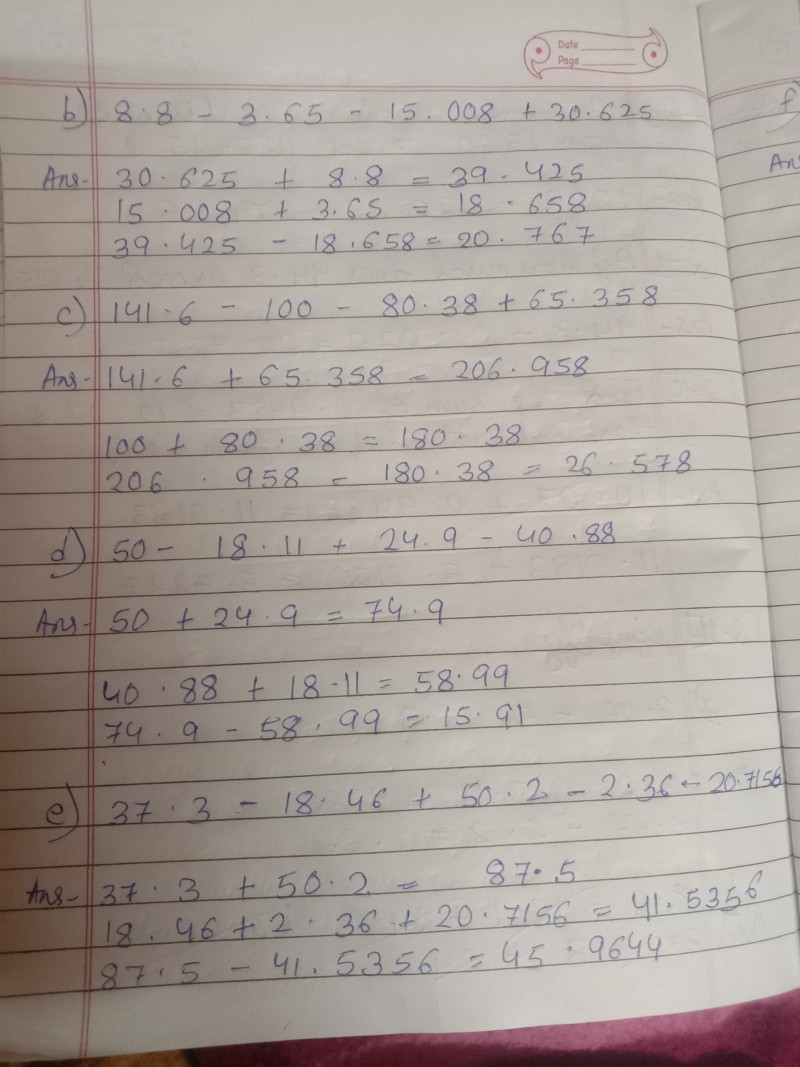 Date
Page
b) 8.8 - 3.65 - 15.008 + 30.625
Ans- 30.625 + 8.8 = 39.425
15.008 + 3.65 = 18.658
39.425 - 18.658 = 20.767
c) 141.6 - 100 - 80.38 + 65.358
Ans- 141.6 + 65.358 = 206.958
100 + 80.38 = 180.38
206.958 - 180.38 = 26.578
d) 50 - 18.11 + 24.9 - 40.88
Ans- 50 + 24.9 = 74.9
40.88 + 18.11 = 58.99
74.9 - 58.99 = 15.91
e) 37.3 - 18.46 + 50.2 - 2.36 - 20.7156
Ans- 37.3 + 50.2 = 87.5
18.46 + 2.36 + 20.7156 = 41.5356
87.5 - 41.5356 = 45.9644
f)
Ans